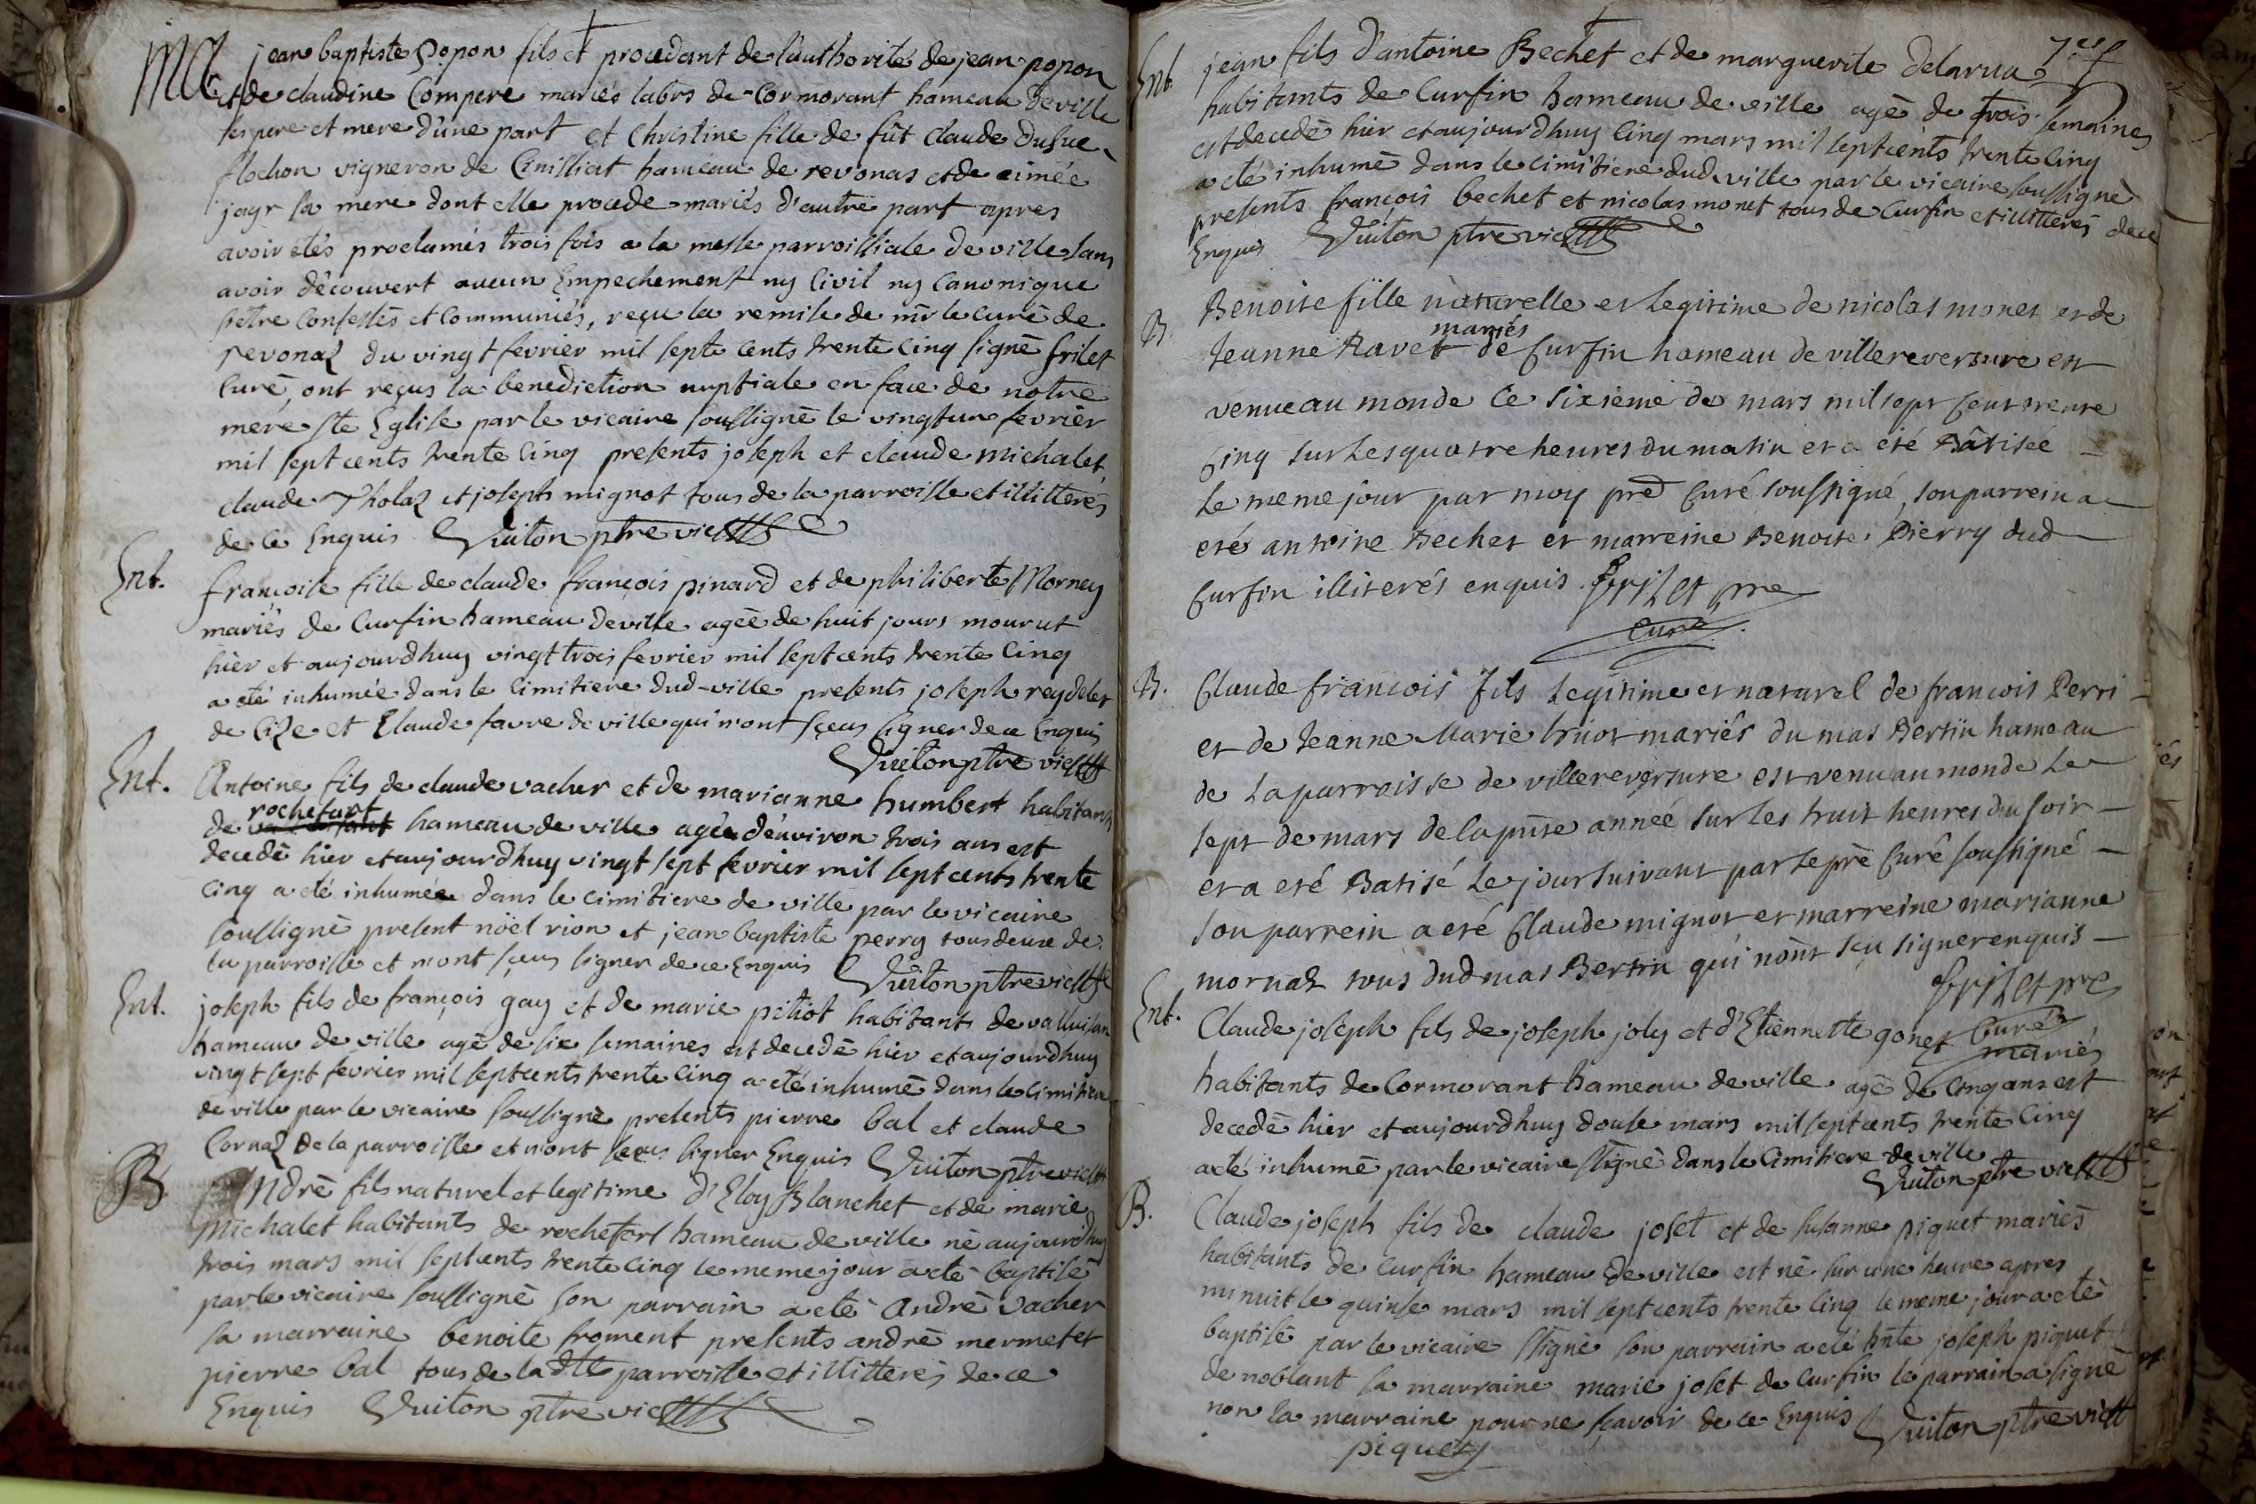 Mar. jean baptiste Popon fils et procedant de l'authorité de jean popon
et de claudine Compere mariés labrs de Cormorant hameau de ville
ses pere et mere d'une part et Christine fille de fût Claude Dufue
flochon vigneron de Cinilliat hameau de revonas et de aimée
jayr sa mere dont elle procede mariés d'autre part apres
avoir etés proclamés trois fois a la messe parroissiale de ville sans
avoir découvert aucun Empechement ny Civil ny Canonique
s'etre Confessés et Communiés, reçu la remise de mr le Curé de
revonaz du vingt fevrier mil sept cents trente cinq signé frilet
Curé, ont reçus la benediction nuptiale en face de notre
mere ste Eglise par le vicaire soussigné le vingt un fevrier
mil sept cents trente cinq presents joseph et claude michalet
claude Tholaz et joseph mignot tous de la parroisse et illitterés
de ce Enquis Vuiton ptre vic
Ent. françoise fille de claude françois pinard et de philiberte Mornay
mariés de Curfin hameau de ville agée de huit jours mourut
hier et aujourdhuy vingt trois fevrier mil sept cents trente Cinq
a eté inhumée dans le Cimitiere dud ville presents joseph reydelet
de Cize et Claude favre de ville qui n'ont sçeus signer de ce Enquis
Vuiton ptre vic
Ent. Antoine fils de claude vacher et de marianne humbert habitants
rochefort
de hameau de ville agée d'environ trois ans est
decedé hier et aujourdhuy vingt sept fevrier mil sept cents trente
Cinq a eté inhumée dans le cimitiere de ville par le vicaire
soussigné present nöel rion et jean baptiste perry tous deux de
la parroisse et n'ont sçeus signer de ce Enquis Vuiton ptre vic
Ent. joseph fils de françois gay et de marie pitiot habitants de valluisan
hameau de ville agé de six semaines est decedé hier et aujourdhuy
vingt sept fevrier mil sept cents trente cinq a eté inhumé dans le Cimitiere
de ville par le vicaire soussigné presents pierre bal et claude
Cornaz de la parroisse et n'ont sceus signer Enquis Vuiton ptre vic
B André fils naturel et legitime d'Eloy Blanchet et de marie
Michalet habitants de rochefort hameau de ville né aujourdhuy
trois mars mil sept cents trente Cinq le meme jour a eté baptisé
par le vicaire soussigné son parrain a eté André Vacher
sa marraine benoite froment presents andré mermet et
pierre bal tous de la dtte parroisse et illitterés de ce
Enquis Vuiton ptre vic
Ent. jean fils d'antoine Bechet et de marguerite Delarua
habitants de Curfin hameau de ville agé de trois semaines
est decedé hier et aujourdhuy Cinq mars mil sept cents trente Cinq
a eté inhumé dans le cimitiere dud ville par le vicaire soussigné
presents françois bechet et nicolas monet tous de Curfin et illitterés de ce
Enquis Vuiton ptre vic
B. Benoite fille naturelle et legitime de nicolas monet et de
mariés
Jeanne Ravet de Curfin hameau de villereversure est
venue au monde Ce sixieme de mars mil sept cent trente
Cinq sur les quatre heures du matin et a eté Bâtisée
le meme jour par moy pre Curé soussigné, son parrein a
eté antoine Bechet et marreine Benoite Pierry dud
Curfin illiterés enquis. frilet pre
curé
B. Claude francois fils legitime et naturel de francois Perri
et de Jeanne Marie bruot mariés du mas Bertin hameau
de la parroisse de villereversure est venu au monde le
sept de mars de la pnte année sur les huit heures du soir
et a eté Batisé le jour suivant par le pre Curé soussigné
son parrein a eté Claude mignot et marreine marianne
mornaz tous dud mas Bertin qui n'ont sçu signer enquis
frilet pre
Curé
Ent. Claude joseph fils de joseph joly et d'Etiennette gonet mariés
habitants de Cormorant hameau de ville agé de Cinq ans est
decedé hier et aujourdhuy douse mars mil sept cents trente Cinq
a eté inhumé par le vicaire ssigné dans le Cimitiere de ville
Vuiton ptre vic
B. Claude joseph fils de claude joset et de susanne piquet mariés
habitants de Curfin hameau de ville est né sur une heure apres
minuit le quinse mars mil sept cents trente Cinq le meme jour a eté
baptisé par le vicaire ssigné son parrain a eté hnte joseph piquet
de noblant sa marraine marie joset de Curfin le parrain a signé
non la marraine pour ne sçavoir de ce Enquis Vuiton ptre vic
piquet